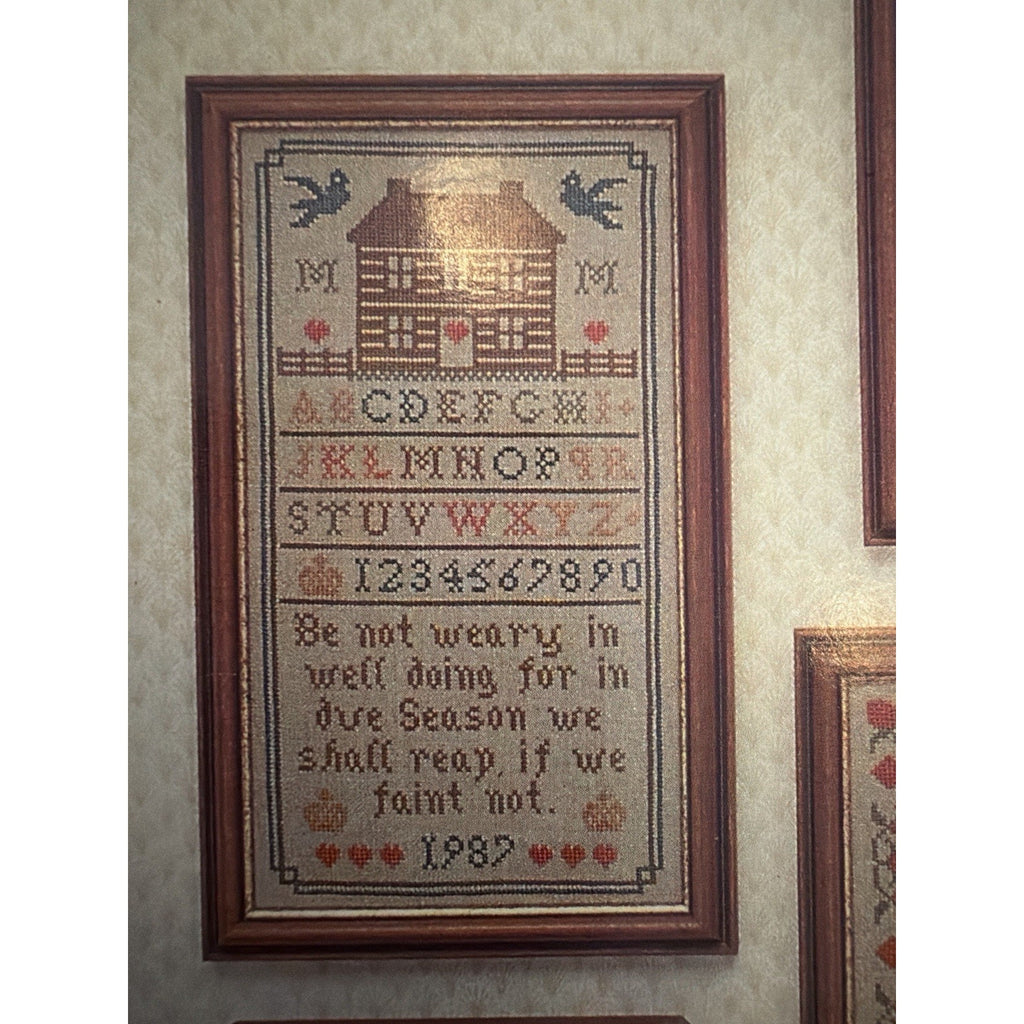 M M
ABCDEFGHI
JKLMNOPQR
STUVWXYZ
1234567890
Be not weary in
well doing for in
due Season we
shall reap, if we
faint not.
1987